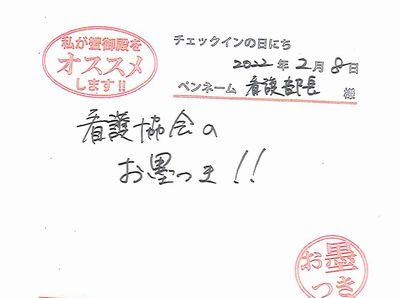 私が蟹御殿を
オススメ
します!!
チェックインの日にち
2022年2月8日
ペンネーム 看護部長 様
看護協会の
お墨つき!!
お墨
つき